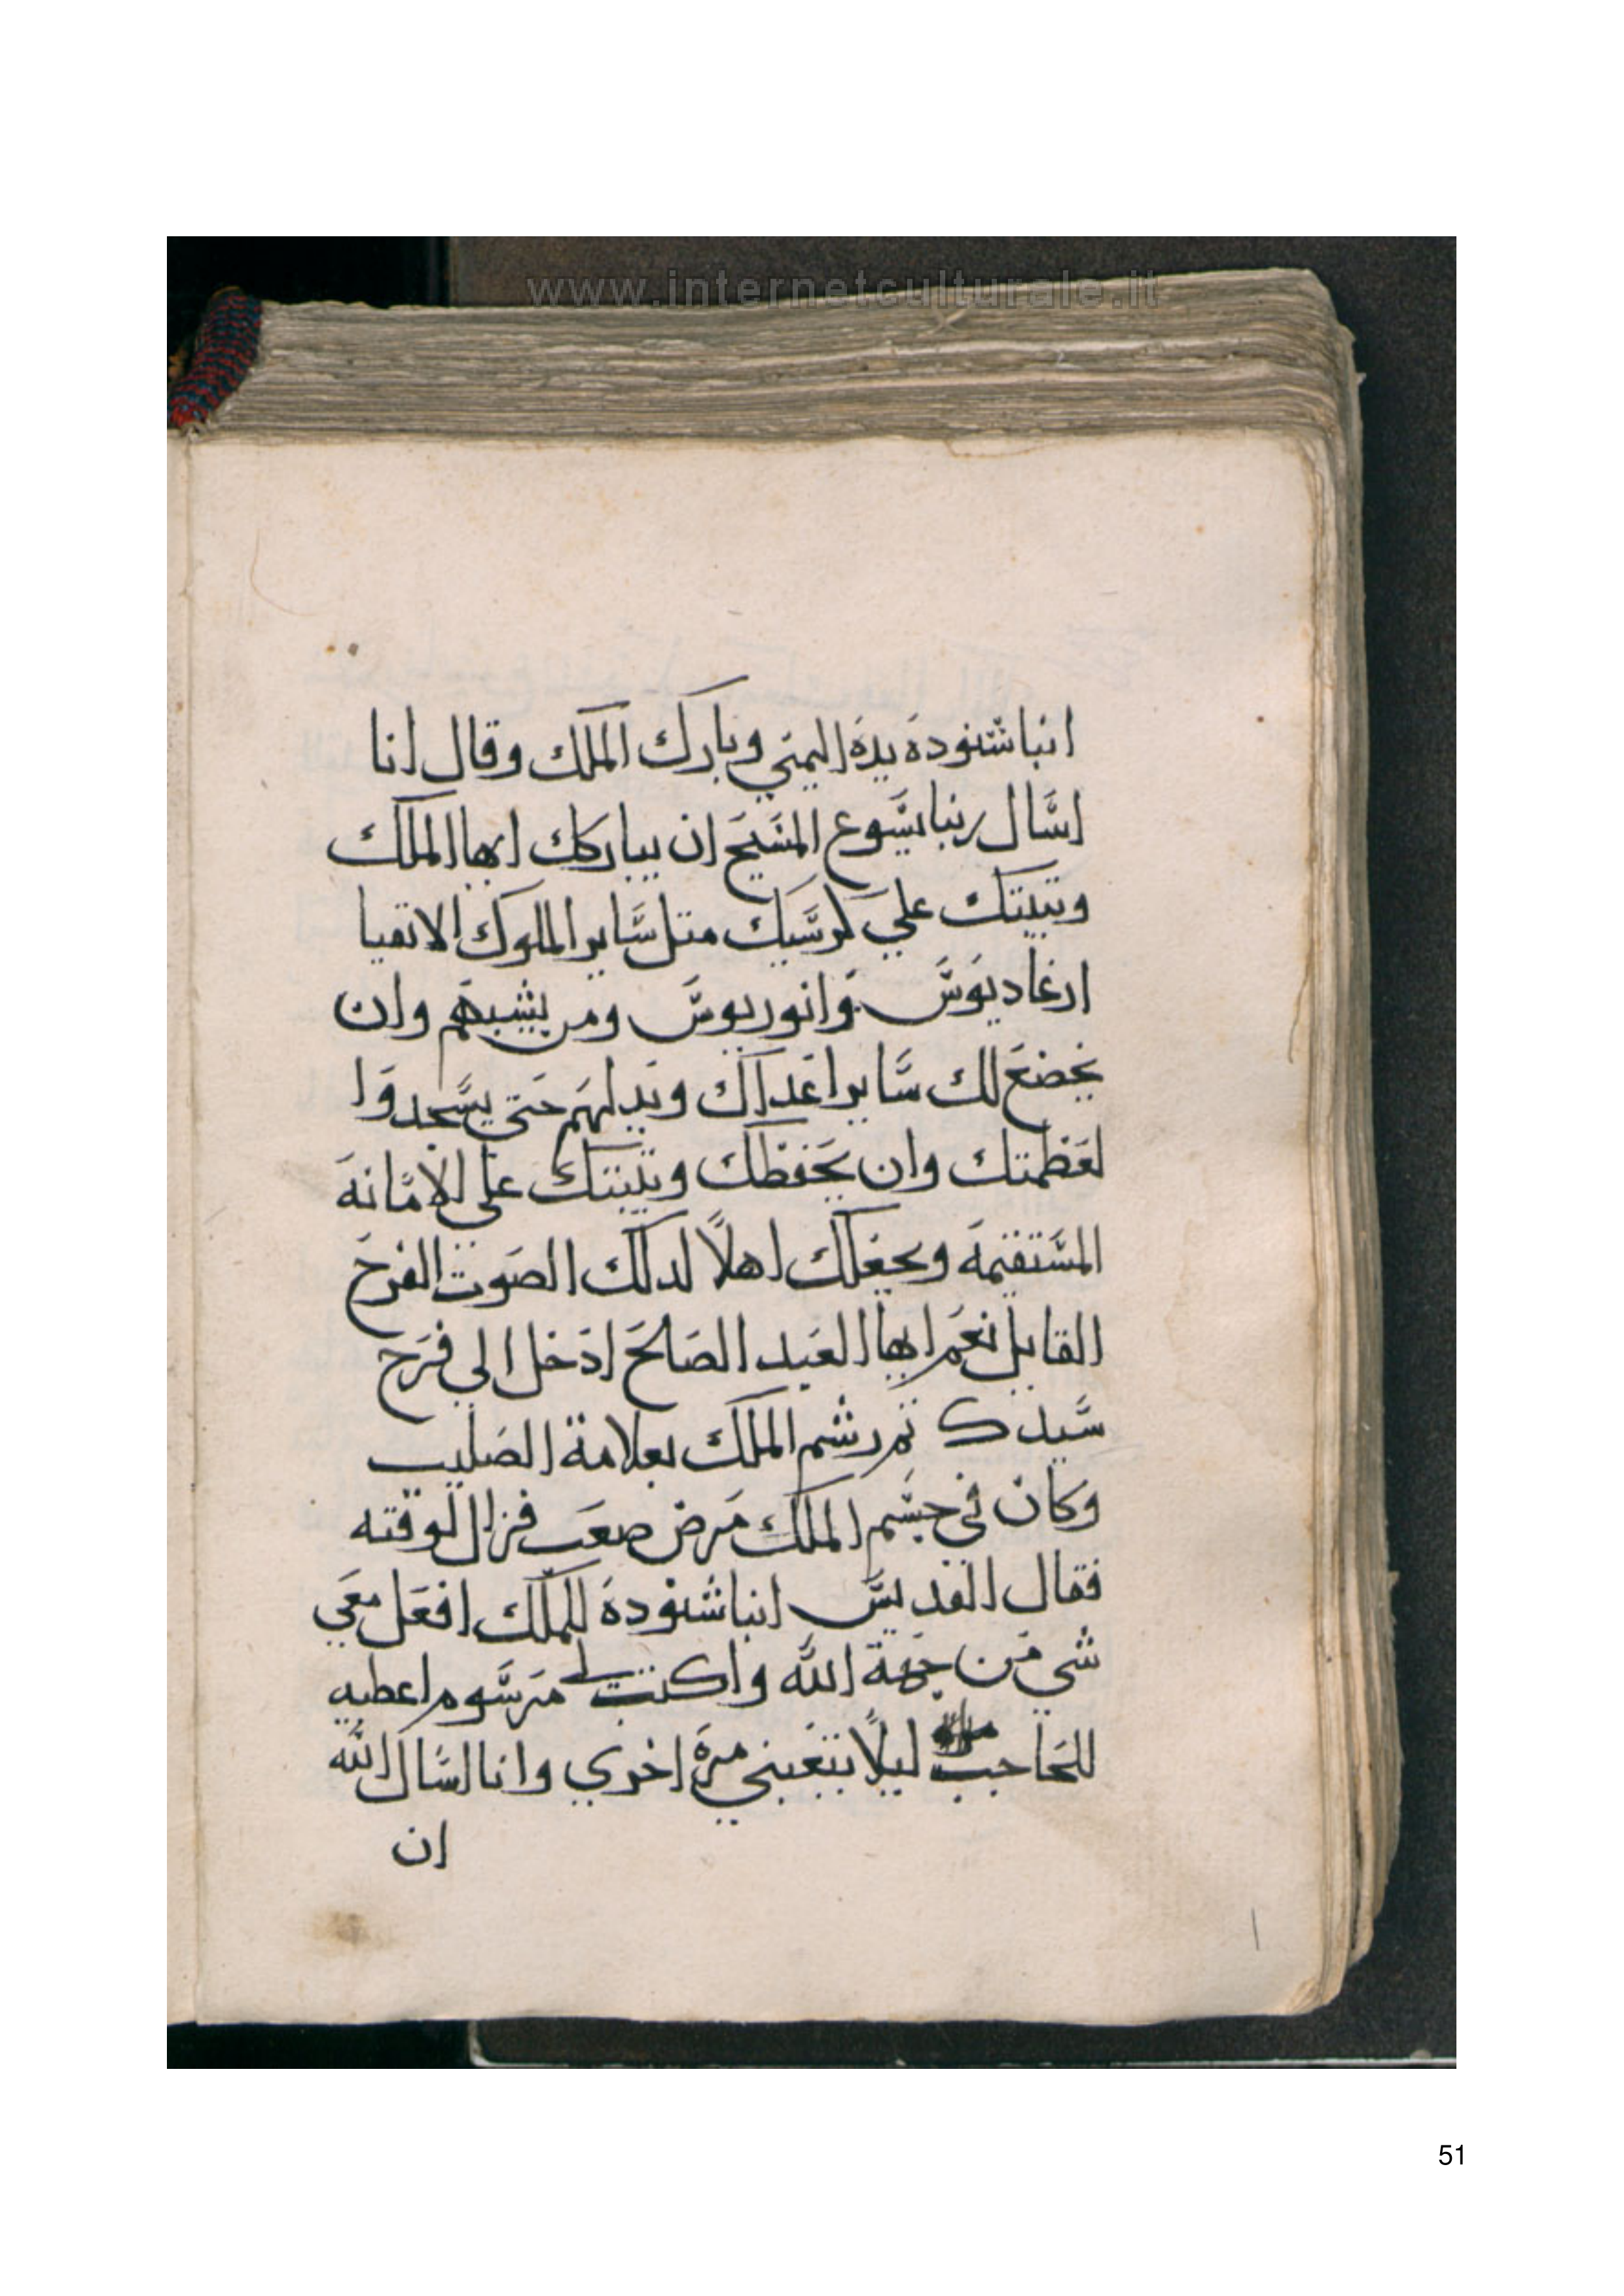 www.internetculturale.it
انبا شنوده يده اليمني وبارك الملك وقال انا
اسال ربنا يسوع المسيح ان يباركك ايها الملك
ويتبتك علي كرسيك متل ساير الملوك الاتقيا
ارغاديوس وانوريوس ومن يشبههم وان
يخضع لك ساير اعداك ويدلهم حتي يسجدوا
لعظمتك وان يحفظك ويتبتك علي الامانه
المستقيمه ويجعلك اهلاً لدلك الصوت الفرح
القايل نعم ايها العبد الصالح ادخل الي فرح
سيدك تم رشم الملك بعلامة الصليب
وكان في جسم الملك مرض صعب فزال لوقته
فقال القديس انبا شنوده للملك افعل معي
شي من جهة الله واكتب لي مرسوم اعطيه
للحاجب ليلاً يتعبني مره اخري وانا اسال الله
ان
51